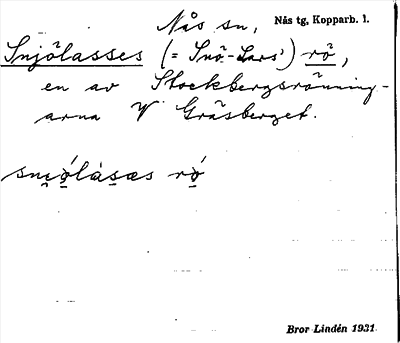 Nås sn, Nås tg, Kopparb. l.
Snjölasses (= Snö-Lars') rö,
en av Stockbergsrönning-
arna V Gräsberget.
sni̯ǫ́lȧsæs rǫ́
Bror Lindén 1931.